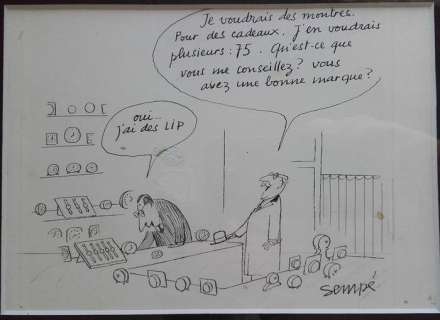 Je voudrais des montres.
Pour des cadeaux. J'en voudrais
plusieurs : 75. Qu'est-ce que
vous me conseillez? vous
avez une bonne marque?
oui...
j'ai des LIP
Sempé